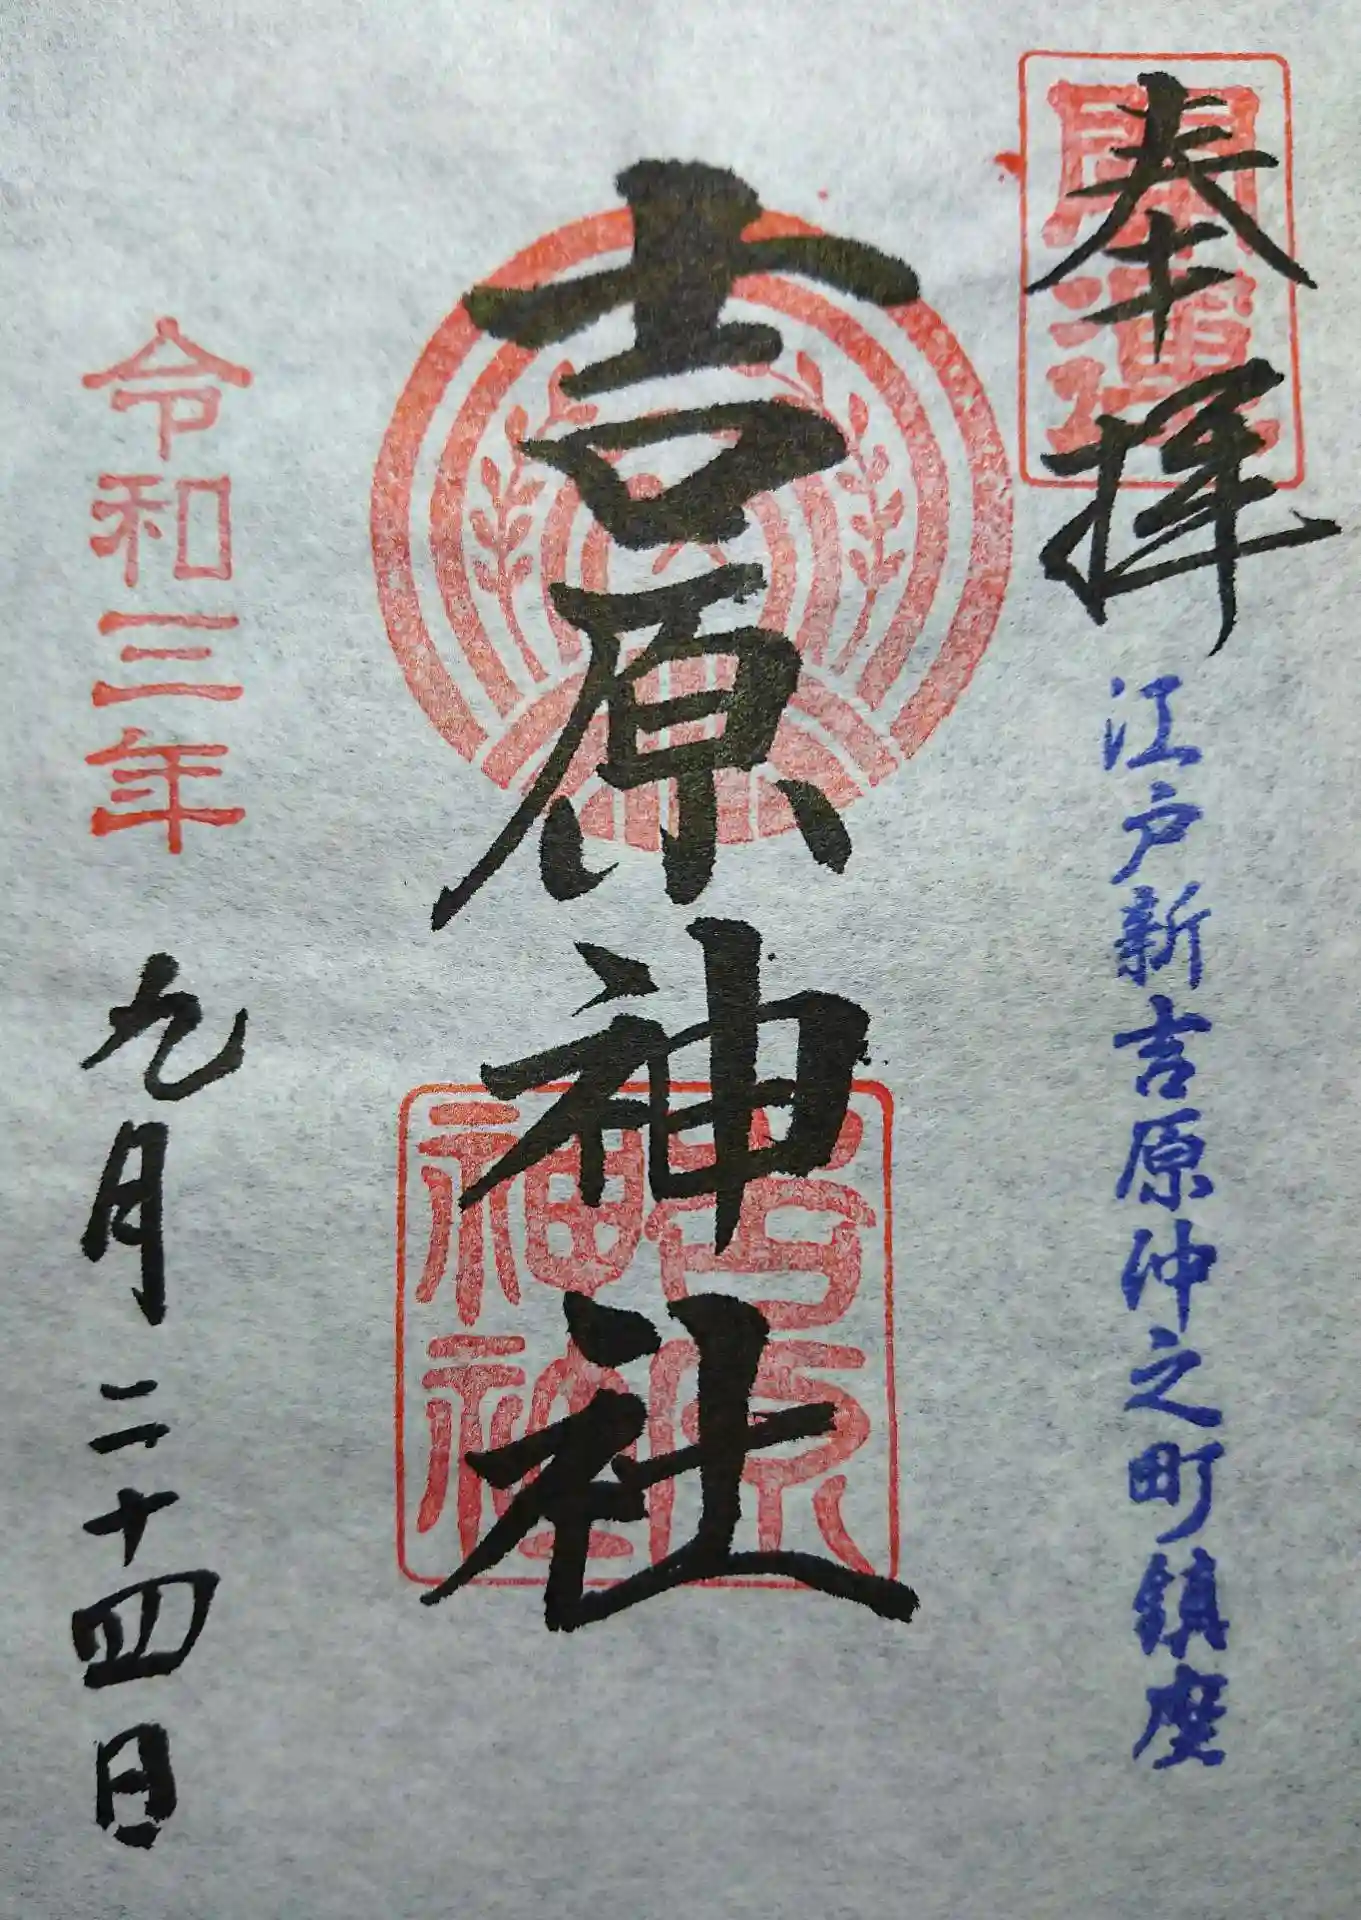 奉拝
開運
江戸新吉原仲之町鎮座
吉原神社
吉原
神社
令和三年
九月二十四日